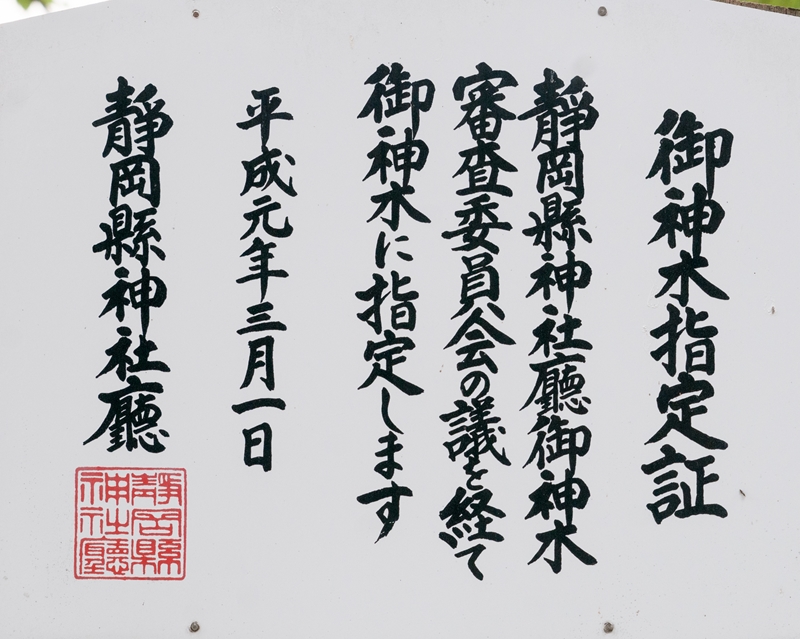 御神水指定証
静岡縣神社廳御神水
審査委員会の議を経て
御神水に指定します
平成元年三月一日
静岡縣神社廳
静岡縣
神社廳